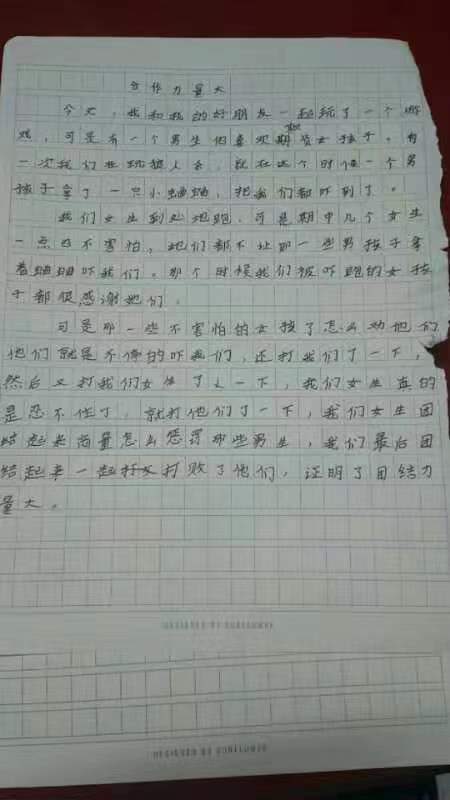 合作力量大
今天，我和我的好朋友一起玩了一个游
戏，可是有一个男生但喜欢欺负女孩子。有
一次我们在玩捉人去，就在这个时候一个男
孩子拿了一只小蛐蛐，把我们都吓到了。
我们女生到处地跑，可是期中几个女生
一点也不害怕，她们都不让那一些男孩子拿
着蛐蛐吓我们。那个时候我们被吓跑的女孩
子都很感谢她们。
可是那一些不害怕的女孩子怎么劝他们
他们就是不停的吓我们，还打我们了一下，
然后又打我们女生了一下，我们女生真的
是忍不住了，就打他们了一下，我们女生团
结起来商量怎么惩罚那些男生，我们最后团
结起来一起打败了他们，证明了团结力
量大。
DESIGNED BY SUNFLOWER
DESIGNED BY SUNFLOWER